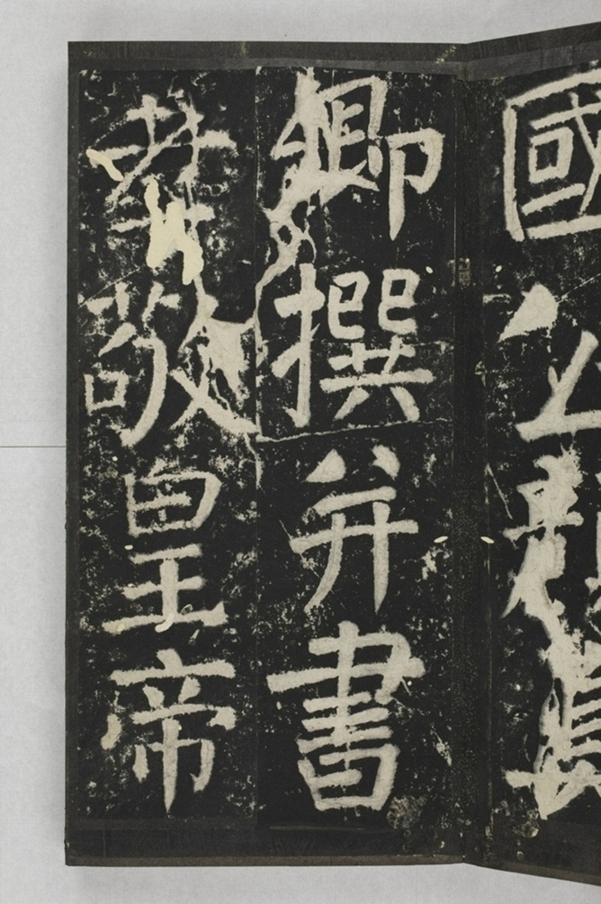 國公顏真
卿撰并書
孝敬皇帝